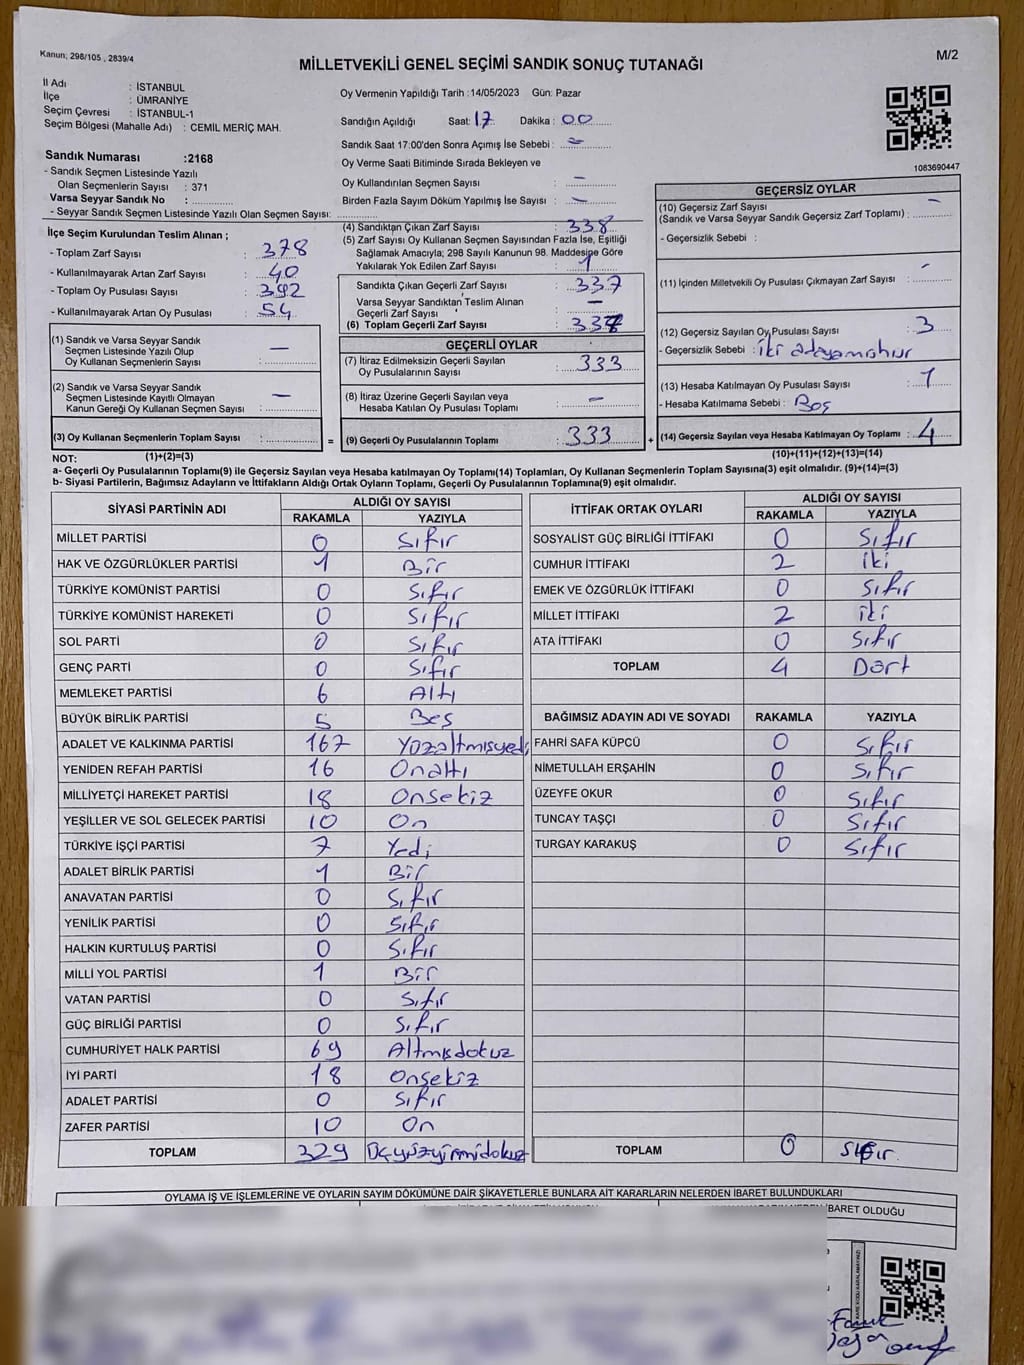 Kanun; 298/105 , 2839/4
M/2
MİLLETVEKİLİ GENEL SEÇİMİ SANDIK SONUÇ TUTANAĞI
İl Adı : İSTANBUL
İlçe : ÜMRANİYE
Seçim Çevresi : İSTANBUL-1
Seçim Bölgesi (Mahalle Adı) : CEMİL MERİÇ MAH.
Sandık Numarası :2168
- Sandık Seçmen Listesinde Yazılı
Olan Seçmenlerin Sayısı : 371
Varsa Seyyar Sandık No :
- Seyyar Sandık Seçmen Listesinde Yazılı Olan Seçmen Sayısı:
Oy Vermenin Yapıldığı Tarih :14/05/2023 Gün: Pazar
Sandığın Açıldığı Saat: 17 Dakika : 00
Sandık Saat 17:00'den Sonra Açımış İse Sebebi : -
Oy Verme Saati Bitiminde Sırada Bekleyen ve
Oy Kullandırılan Seçmen Sayısı : -
Birden Fazla Sayım Döküm Yapılmış İse Sayısı : -
1083690447
İlçe Seçim Kurulundan Teslim Alınan ;
- Toplam Zarf Sayısı : 378
- Kullanılmayarak Artan Zarf Sayısı : 40
- Toplam Oy Pusulası Sayısı : 392
- Kullanılmayarak Artan Oy Pusulası : 54
(1) Sandık ve Varsa Seyyar Sandık
Seçmen Listesinde Yazılı Olup
Oy Kullanan Seçmenlerin Sayısı : -
(2) Sandık ve Varsa Seyyar Sandık
Seçmen Listesinde Kayıtlı Olmayan
Kanun Gereği Oy Kullanan Seçmen Sayısı : -
(3) Oy Kullanan Seçmenlerin Toplam Sayısı :
(4) Sandıktan Çıkan Zarf Sayısı : 338
(5) Zarf Sayısı Oy Kullanan Seçmen Sayısından Fazla İse, Eşitliği
Sağlamak Amacıyla; 298 Sayılı Kanunun 98. Maddesine Göre
Yakılarak Yok Edilen Zarf Sayısı : 1
Sandıkta Çıkan Geçerli Zarf Sayısı : 337
Varsa Seyyar Sandıktan Teslim Alınan
Geçerli Zarf Sayısı : -
(6) Toplam Geçerli Zarf Sayısı : 337
GEÇERLİ OYLAR
(7) İtiraz Edilmeksizin Geçerli Sayılan
Oy Pusulalarının Sayısı : 333
(8) İtiraz Üzerine Geçerli Sayılan veya
Hesaba Katılan Oy Pusulası Toplamı : -
= (9) Geçerli Oy Pusulalarının Toplamı : 333 +
GEÇERSİZ OYLAR
(10) Geçersiz Zarf Sayısı
(Sandık ve Varsa Seyyar Sandık Geçersiz Zarf Toplamı) : -
- Geçersizlik Sebebi :
(11) İçinden Milletvekili Oy Pusulası Çıkmayan Zarf Sayısı : -
(12) Geçersiz Sayılan Oy Pusulası Sayısı : 3
- Geçersizlik Sebebi : iki adaya mühür
(13) Hesaba Katılmayan Oy Pusulası Sayısı : 1
- Hesaba Katılmama Sebebi : Boş
(14) Geçersiz Sayılan veya Hesaba Katılmayan Oy Toplamı : 4
NOT: (1)+(2)=(3)
(10)+(11)+(12)+(13)=(14)
a- Geçerli Oy Pusulalarının Toplamı(9) ile Geçersiz Sayılan veya Hesaba katılmayan Oy Toplamı(14) Toplamları, Oy Kullanan Seçmenlerin Toplam Sayısına(3) eşit olmalıdır. (9)+(14)=(3)
b- Siyasi Partilerin, Bağımsız Adayların ve İttifakların Aldığı Ortak Oyların Toplamı, Geçerli Oy Pusulalarının Toplamına(9) eşit olmalıdır.
SİYASİ PARTİNİN ADI ALDIĞI OY SAYISI
RAKAMLA YAZIYLA
MİLLET PARTİSİ 0 Sıfır
HAK VE ÖZGÜRLÜKLER PARTİSİ 1 Bir
TÜRKİYE KOMÜNİST PARTİSİ 0 Sıfır
TÜRKİYE KOMÜNİST HAREKETİ 0 Sıfır
SOL PARTİ 0 Sıfır
GENÇ PARTİ 0 Sıfır
MEMLEKET PARTİSİ 6 Altı
BÜYÜK BİRLİK PARTİSİ 5 Beş
ADALET VE KALKINMA PARTİSİ 167 Yüzaltmışyedi
YENİDEN REFAH PARTİSİ 16 Onaltı
MİLLİYETÇİ HAREKET PARTİSİ 18 Onsekiz
YEŞİLLER VE SOL GELECEK PARTİSİ 10 On
TÜRKİYE İŞÇİ PARTİSİ 7 Yedi
ADALET BİRLİK PARTİSİ 1 Bir
ANAVATAN PARTİSİ 0 Sıfır
YENİLİK PARTİSİ 0 Sıfır
HALKIN KURTULUŞ PARTİSİ 0 Sıfır
MİLLİ YOL PARTİSİ 1 Bir
VATAN PARTİSİ 0 Sıfır
GÜÇ BİRLİĞİ PARTİSİ 0 Sıfır
CUMHURİYET HALK PARTİSİ 69 Altmışdokuz
İYİ PARTİ 18 Onsekiz
ADALET PARTİSİ 0 Sıfır
ZAFER PARTİSİ 10 On
TOPLAM 329 Üçyüzyirmidokuz
İTTİFAK ORTAK OYLARI ALDIĞI OY SAYISI
RAKAMLA YAZIYLA
SOSYALİST GÜÇ BİRLİĞİ İTTİFAKI 0 Sıfır
CUMHUR İTTİFAKI 2 iki
EMEK VE ÖZGÜRLÜK İTTİFAKI 0 Sıfır
MİLLET İTTİFAKI 2 iki
ATA İTTİFAKI 0 Sıfır
TOPLAM 4 Dört
BAĞIMSIZ ADAYIN ADI VE SOYADI RAKAMLA YAZIYLA
FAHRİ SAFA KÜPCÜ 0 Sıfır
NİMETULLAH ERŞAHİN 0 Sıfır
ÜZEYFE OKUR 0 Sıfır
TUNCAY TAŞÇI 0 Sıfır
TURGAY KARAKUŞ 0 Sıfır
TOPLAM 0 Sıfır.
OYLAMA İŞ VE İŞLEMLERİNE VE OYLARIN SAYIM DÖKÜMÜNE DAİR ŞİKAYETLERLE BUNLARA AİT KARARLARIN NELERDEN İBARET BULUNDUKLARI
İBARET OLDUĞU